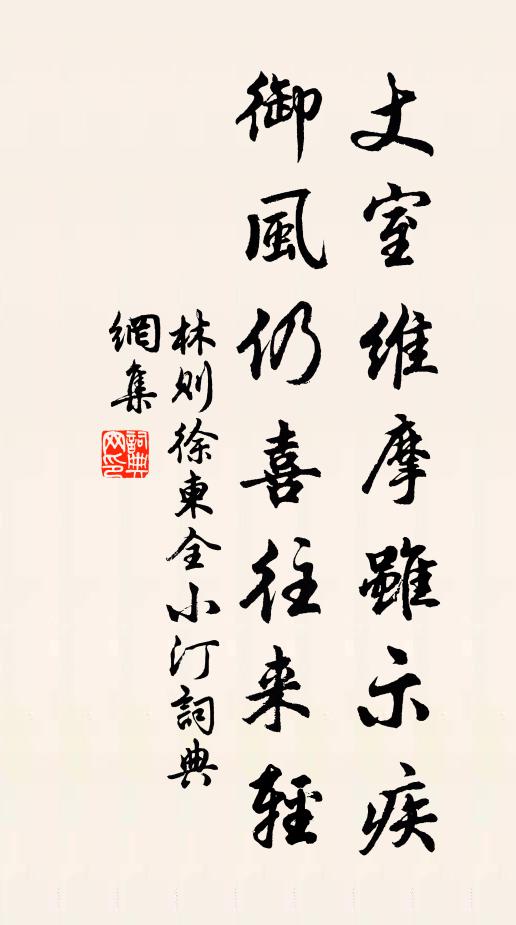 丈室維摩雖示疾
御風仍喜往来輕
林則徐東全小汀詞典
網集
詞典網印